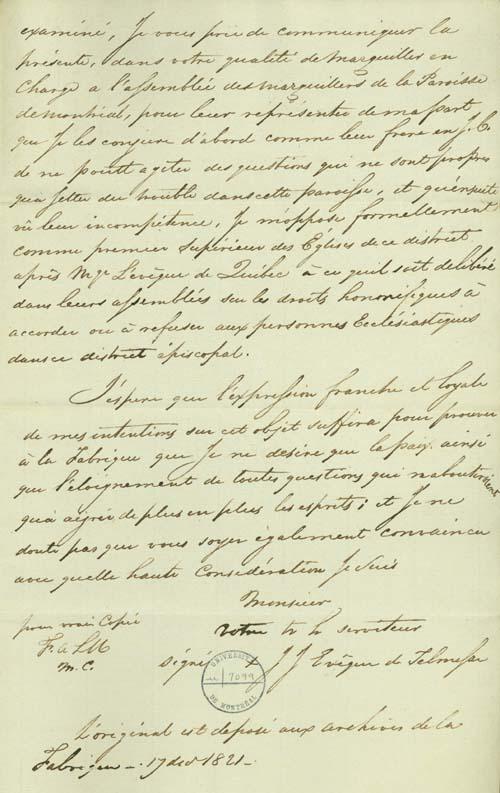 examiné, Je vous prie de communiquer la
présente, dans votre qualité de Marguiller en
Charge a l'assemblée des Marguillers de la Paroisse
de montréal, pour leur représenter de ma part
que Je les conjure d'abord comme leur frere en J. C.
de ne point agiter des questions qui ne sont propres
qu'a jetter du trouble dans cette paroisse, et qu'ensuite
vû leur incompétence, Je m'oppose formellement
comme premier Supérieur des Églises de ce district
après Mgr. L'évêque de Québec à ce qu'il soit delibéré
dans leurs assemblées sur les droits honorifiques à
accorder ou à refuser aux personnes Ecclésiastiques
dans ce district épiscopal.
J'espere que l'expression franche et loyale
de mes intentions sur cet objet suffira pour prouver
à la Fabrique que Je ne desire que la paix ainsi
que l'éloignement de toutes questions qui n'aboutiroient
qu'a aigrir de plus en plus les esprits; et Je ne
doute pas que vous soyez également convaincu
avec quelle haute Considération Je Suis
Monsieur
votre tr h serviteur
pour vraie Copie
F. a L M
M. C.
signé J J Evêque de Telmesse
UNIVERSITÉ
7099
DE MONTRÉAL
L'original est deposé aux archives de la
Fabrique - 17 decr 1821 -